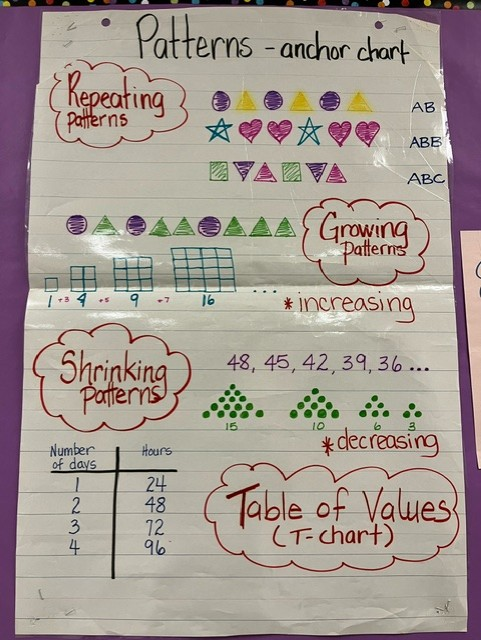 Patterns - anchor chart
Repeating
patterns
AB
ABB
ABC
Growing
patterns
1 +3 4 +5 9 +7 16 ...
*increasing
Shrinking
patterns
48, 45, 42, 39, 36 ...
15 10 6 3
*decreasing
Number
of days
Hours
1 24
2 48
3 72
4 96
Table of Values
(T-chart)